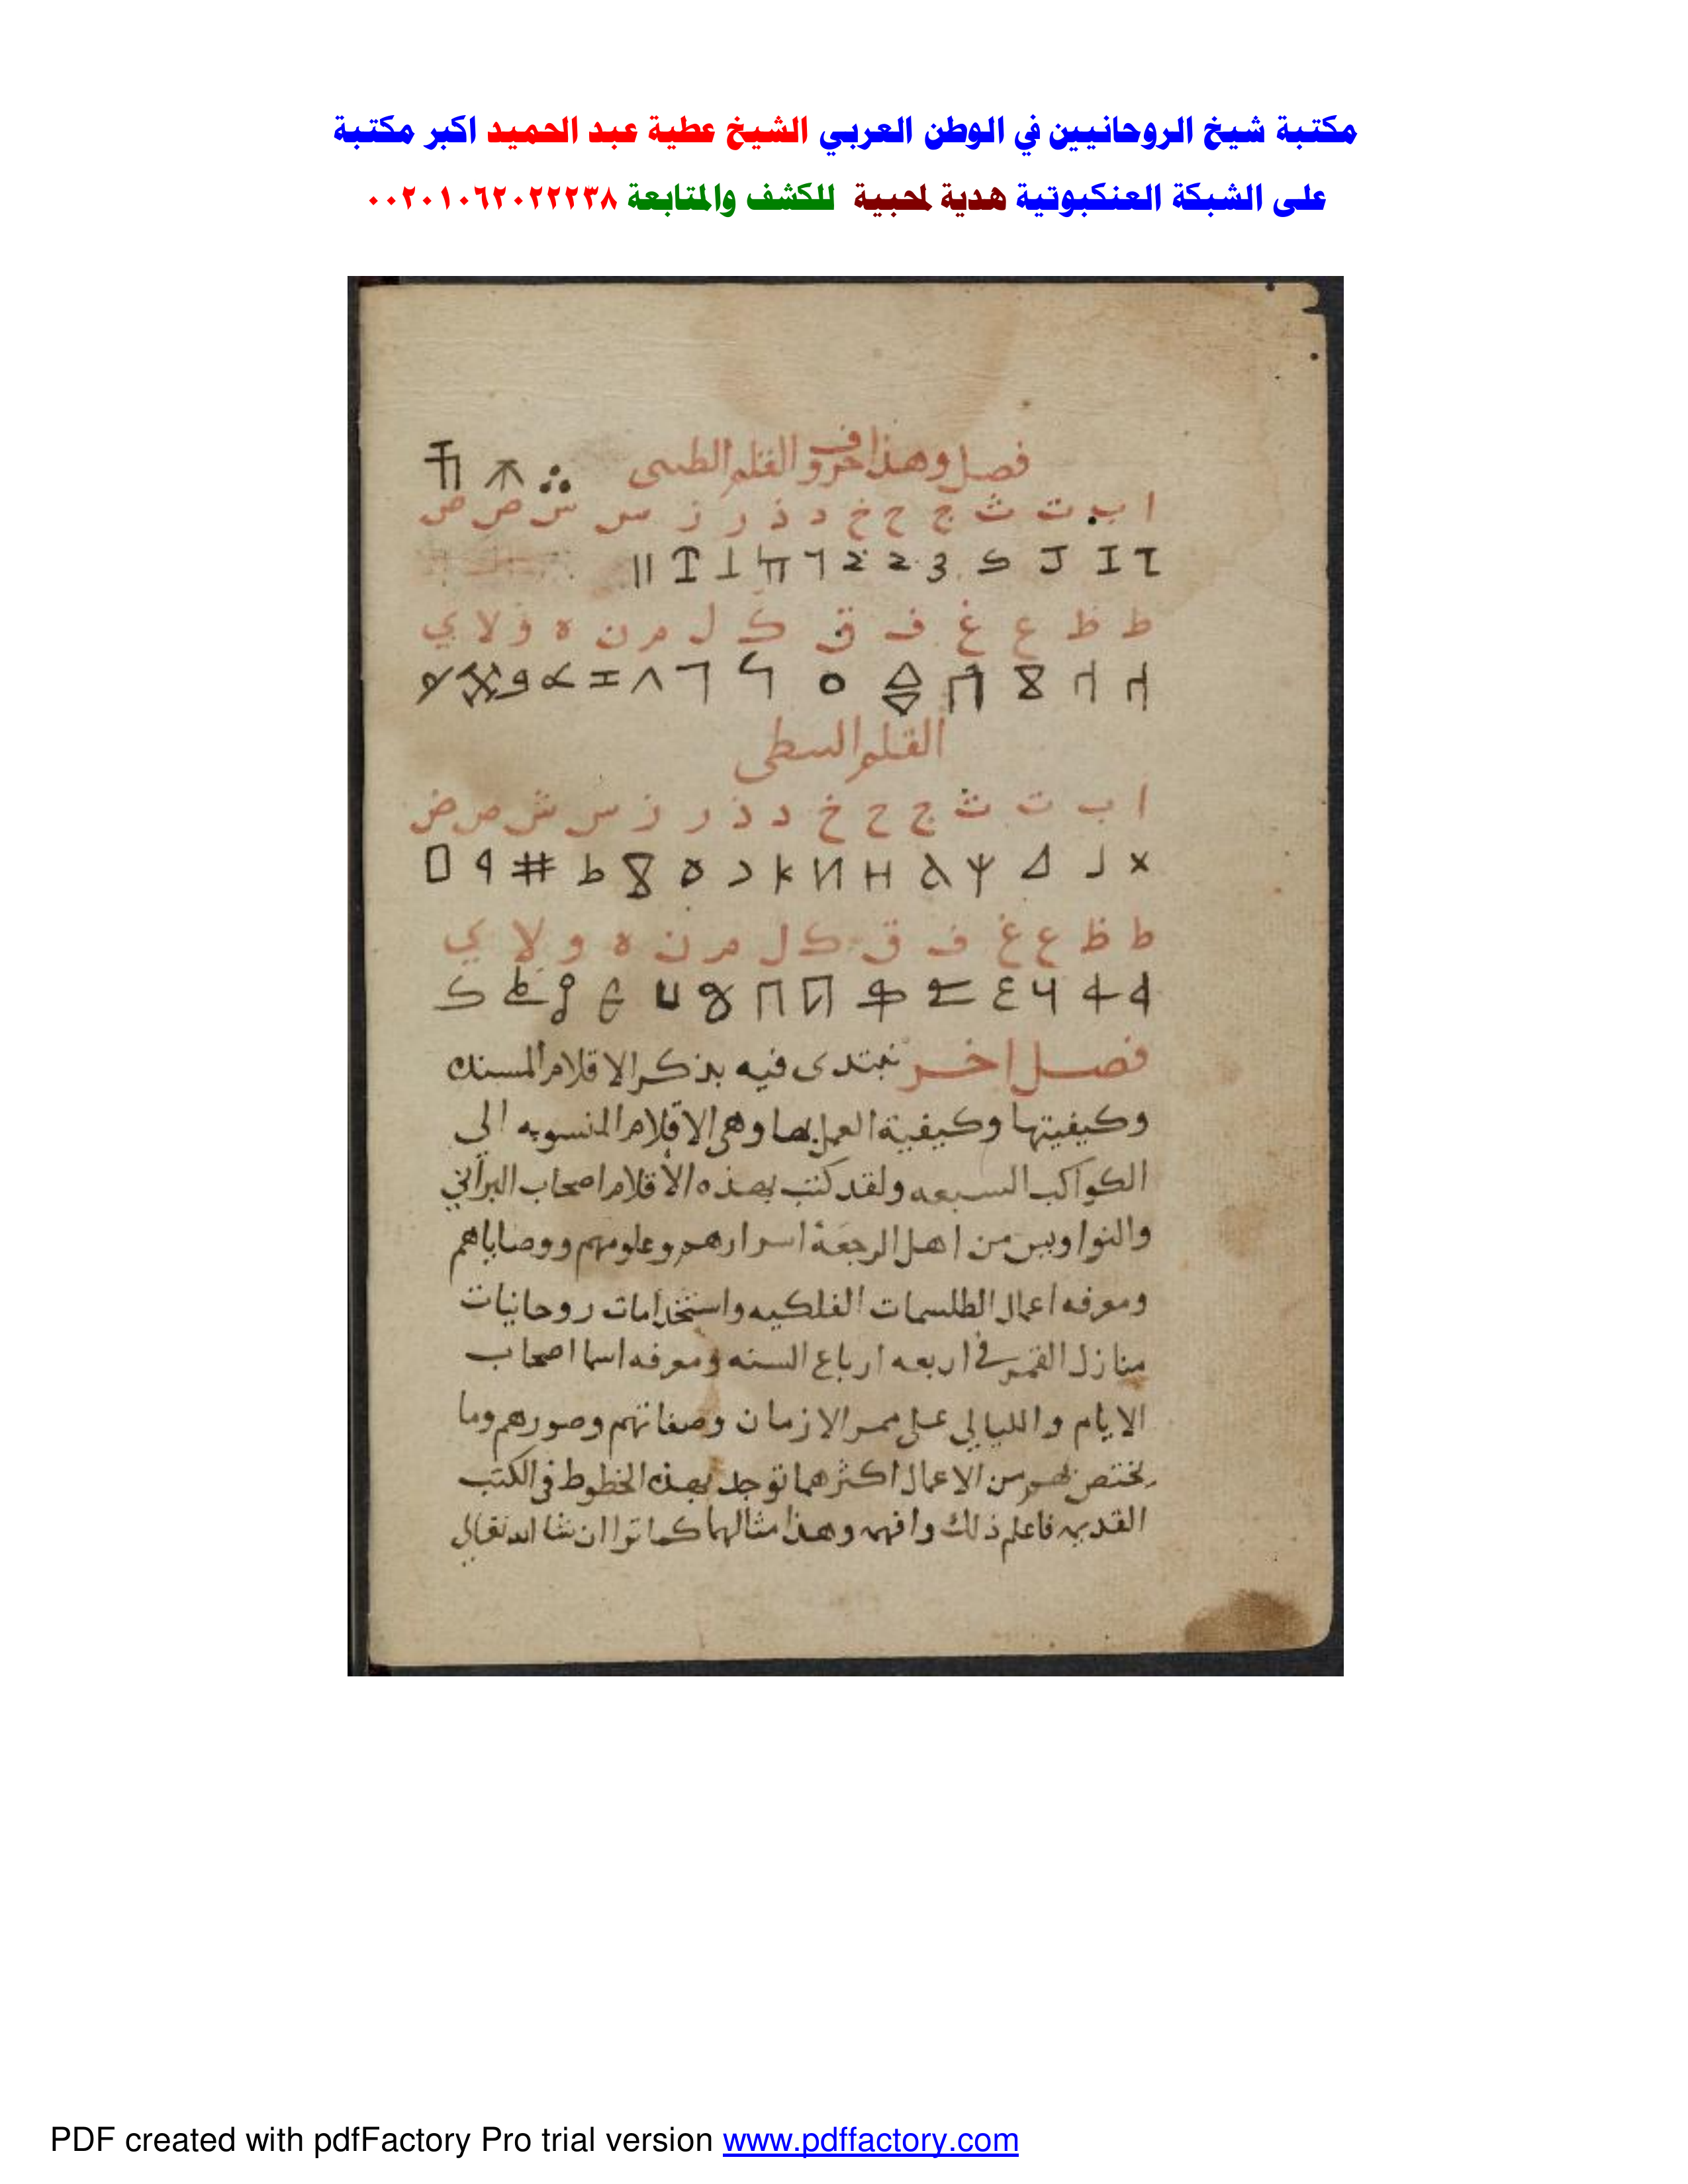 مكتبة شيخ الروحانيين في الوطن العربي الشيخ عطية عبد الحميد اكبر مكتبة
على الشبكة العنكبوتية هدية لمحبية للكشف والمتابعة ٠٠٢٠١٠٦٢٠٢٢٢٣٨
فصل وهذا حروف القلم
ا ب ت ث ج ح خ د ذ ر ز س ش ص ض
ط ظ ع غ ف ق ك ل م ن ه و لا ي
القلم
ا ب ت ث ج ح خ د ذ ر ز س ش ص ض
ط ظ ع غ ف ق ك ل م ن ه و لا ي
فصل اخر نبتدى فيه بذكر الاقلام
وكيفيتها وكيفية العمل بها وهى الاقلام المنسوبه الى
الكواكب السبعه ولقد كتب بهذه الأقلام اصحاب البرابي
والنواويس من اهل الرجعة اسرارهم وعلومهم ووصاياهم
ومعرفه اعمال الطلسمات الفلكيه واستخدامات روحانيات
منازل القمر في اربعه ارباع السنه ومعرفه اسما اصحاب
الايام والليالي على ممر الازمان وصفاتهم وصورهم وما
يختص بهم من الاعمال اكثرهما توجد بهذه الخطوط فى الكتب
القديمه فاعلم ذلك وافهم وهذا مثالهما كما ترا ان شا الله تعالى
PDF created with pdfFactory Pro trial version www.pdffactory.com